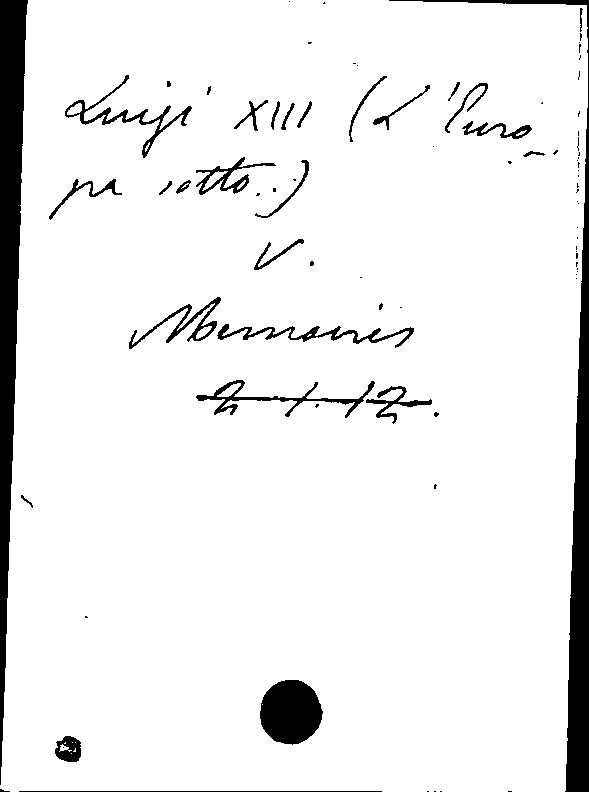 Luigi XIII (L'Euro
pa sotto..)
V.
Memoires
2. 1. 12.